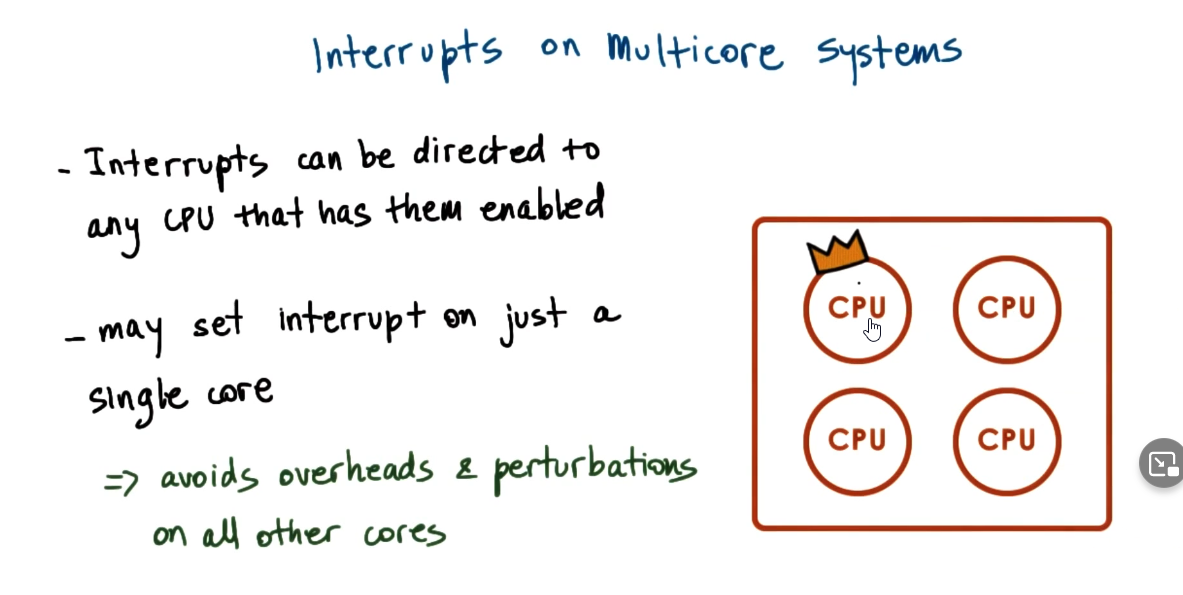 Interrupts on Multicore Systems
- Interrupts can be directed to
any CPU that has them enabled
- may set interrupt on just a
single core
=> avoids overheads & perturbations
on all other cores
CPU CPU
CPU CPU